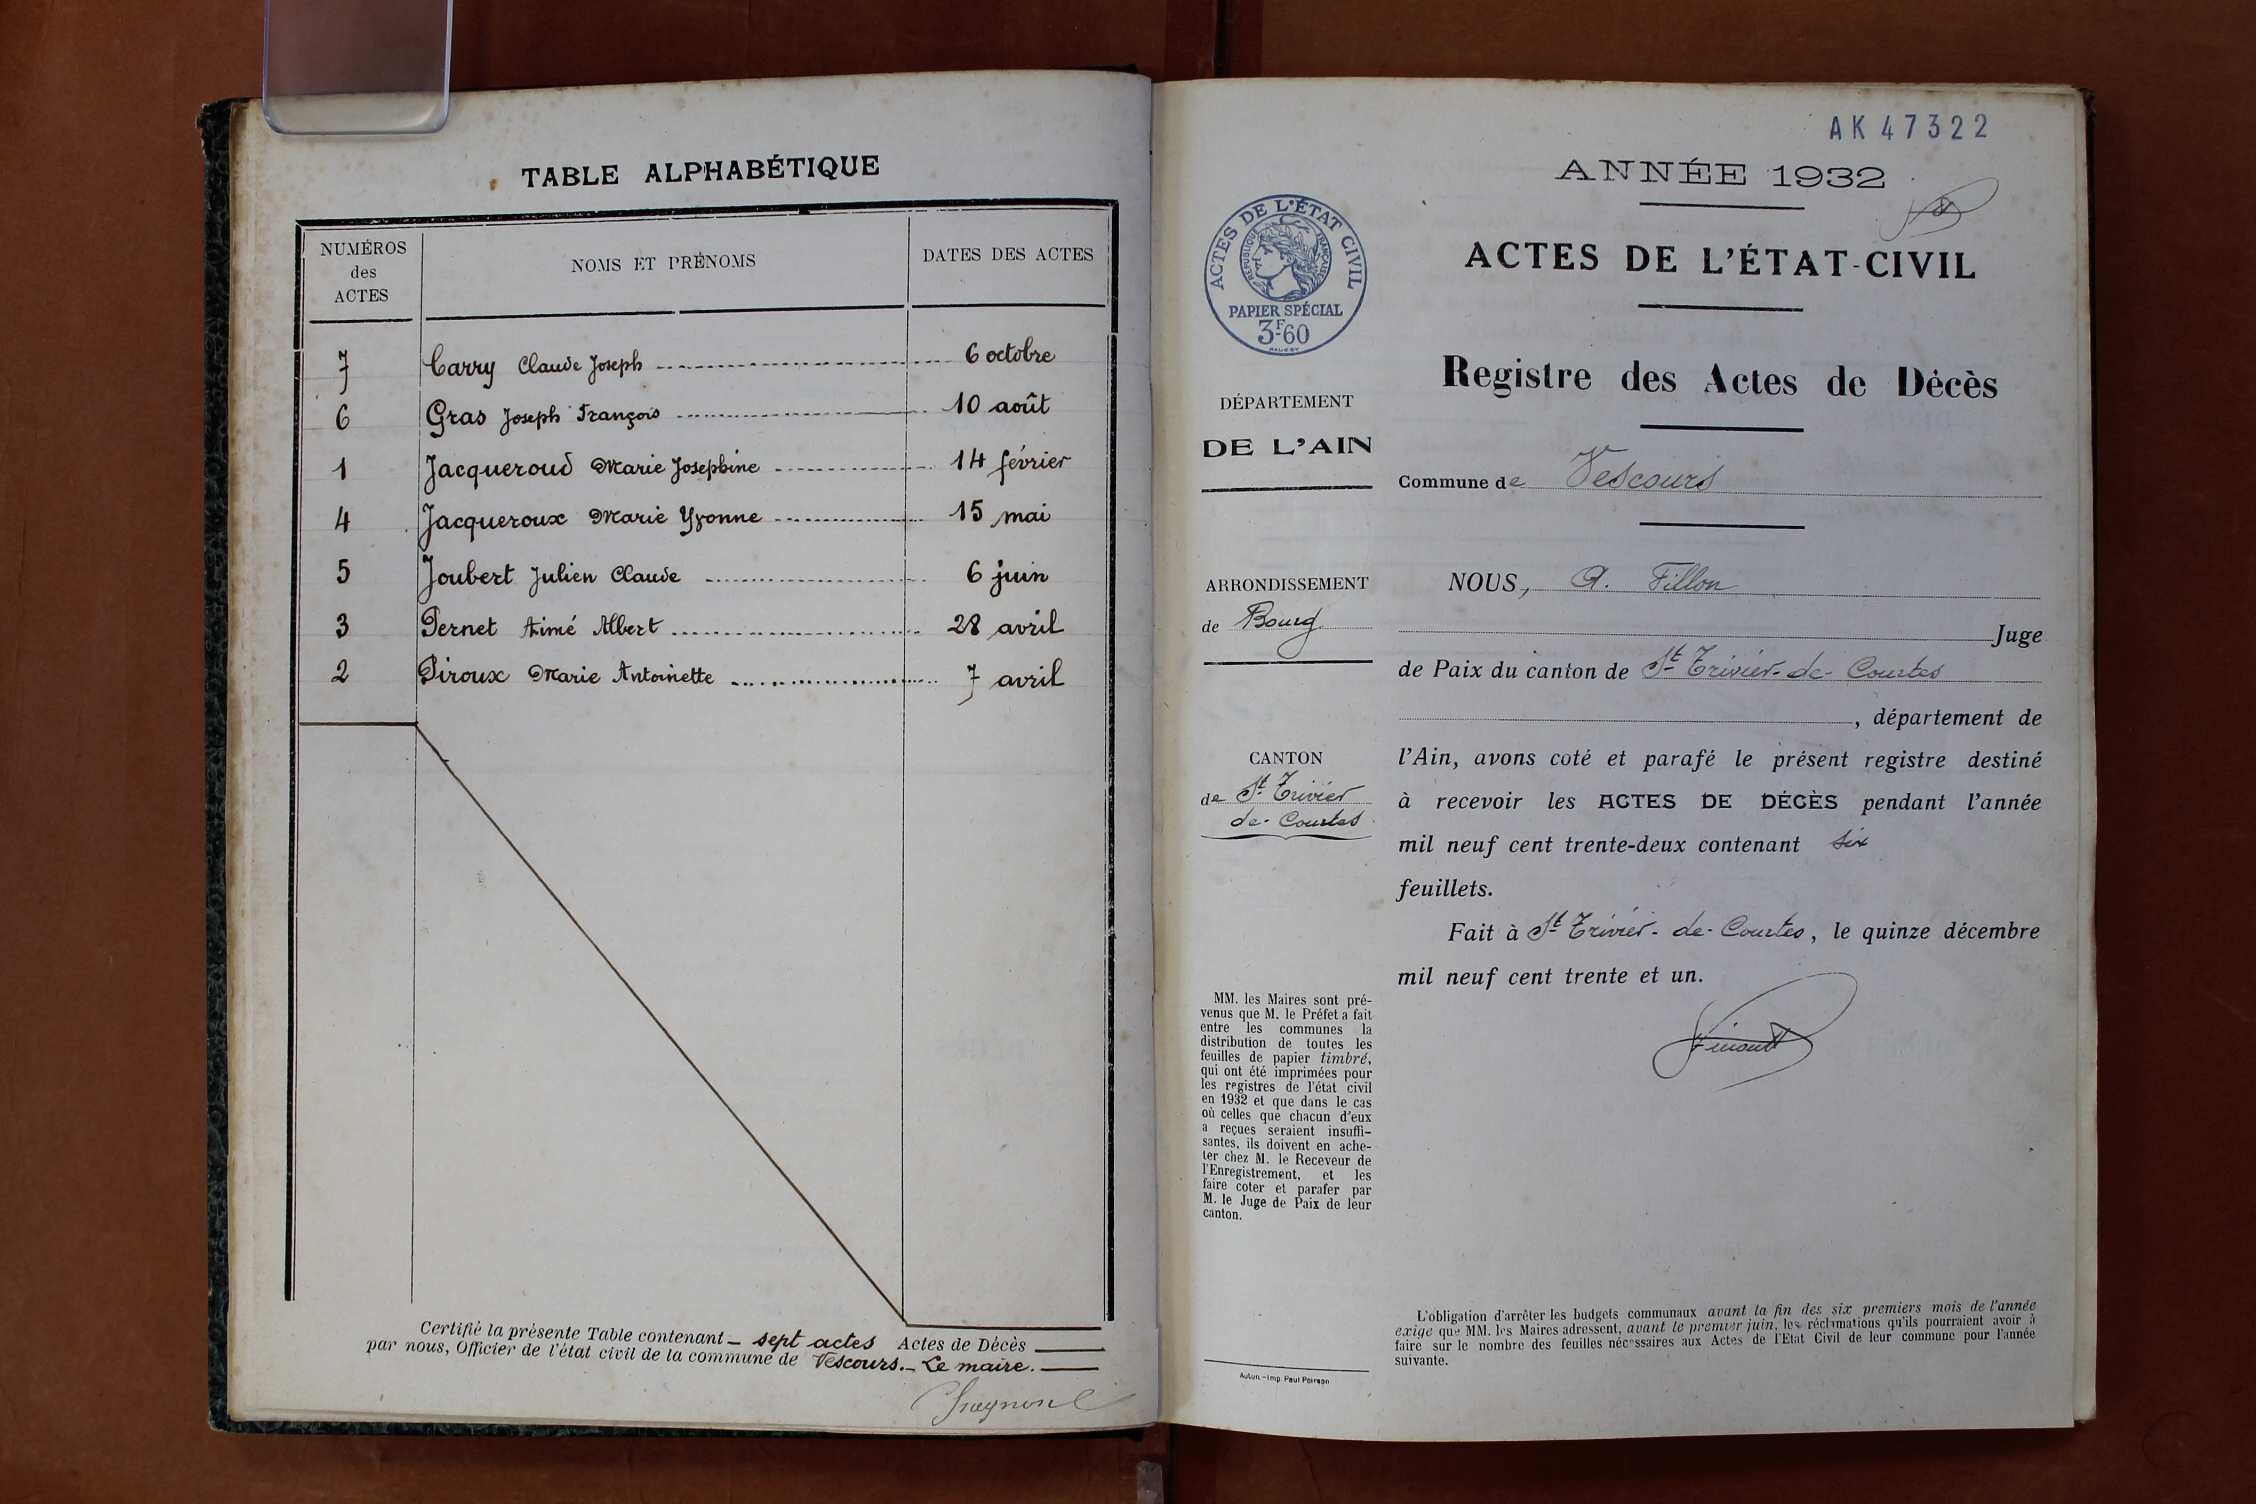 TABLE ALPHABÉTIQUE
NUMÉROS des ACTES
NOMS ET PRÉNOMS
DATES DES ACTES
7 Carry Claude Joseph 6 octobre
6 Gras Joseph François 10 août
1 Jacqueroud Marie Josephine 14 février
4 Jacqueroux Marie Yvonne 15 mai
5 Joubert Julien Claude 6 juin
3 Pernet Aimé Albert 28 avril
2 Piroux Marie Antoinette 7 avril
Certifié la présente Table contenant sept actes Actes de Décès
par nous, Officier de l'état civil de la commune de Vescours. Le maire.
AK 47322
ANNÉE 1932
ACTES DE L'ÉTAT CIVIL
RÉPUBLIQUE FRANÇAISE
PAPIER SPÉCIAL
3F60
ACTES DE L'ÉTAT-CIVIL
Registre des Actes de Décès
DÉPARTEMENT
DE L'AIN
Commune de Vescours
ARRONDISSEMENT
de Bourg
NOUS, A. Fillon
Juge
de Paix du canton de St Trivier-de-Courtes
, département de
CANTON
de St Trivier
de-Courtes
l'Ain, avons coté et parafé le présent registre destiné
à recevoir les ACTES DE DÉCÈS pendant l'année
mil neuf cent trente-deux contenant six
feuillets.
Fait à St Trivier-de-Courtes, le quinze décembre
mil neuf cent trente et un.
MM. les Maires sont pré-
venus que M. le Préfet a fait
entre les communes la
distribution de toutes les
feuilles de papier timbré,
qui ont été imprimées pour
les registres de l'état civil
en 1932 et que dans le cas
où celles que chacun d'eux
a reçues seraient insuffi-
santes, ils doivent en ache-
ter chez M. le Receveur de
l'Enregistrement, et les
faire coter et parafer par
M. le Juge de Paix de leur
canton.
L'obligation d'arrêter les budgets communaux avant la fin des six premiers mois de l'année
exige que MM. les Maires adressent, avant le premier juin, les réclamations qu'ils pourraient avoir à
faire sur le nombre des feuilles nécessaires aux Actes de l'Etat Civil de leur commune pour l'année
suivante.
Autun.-Imp. Paul Poirson